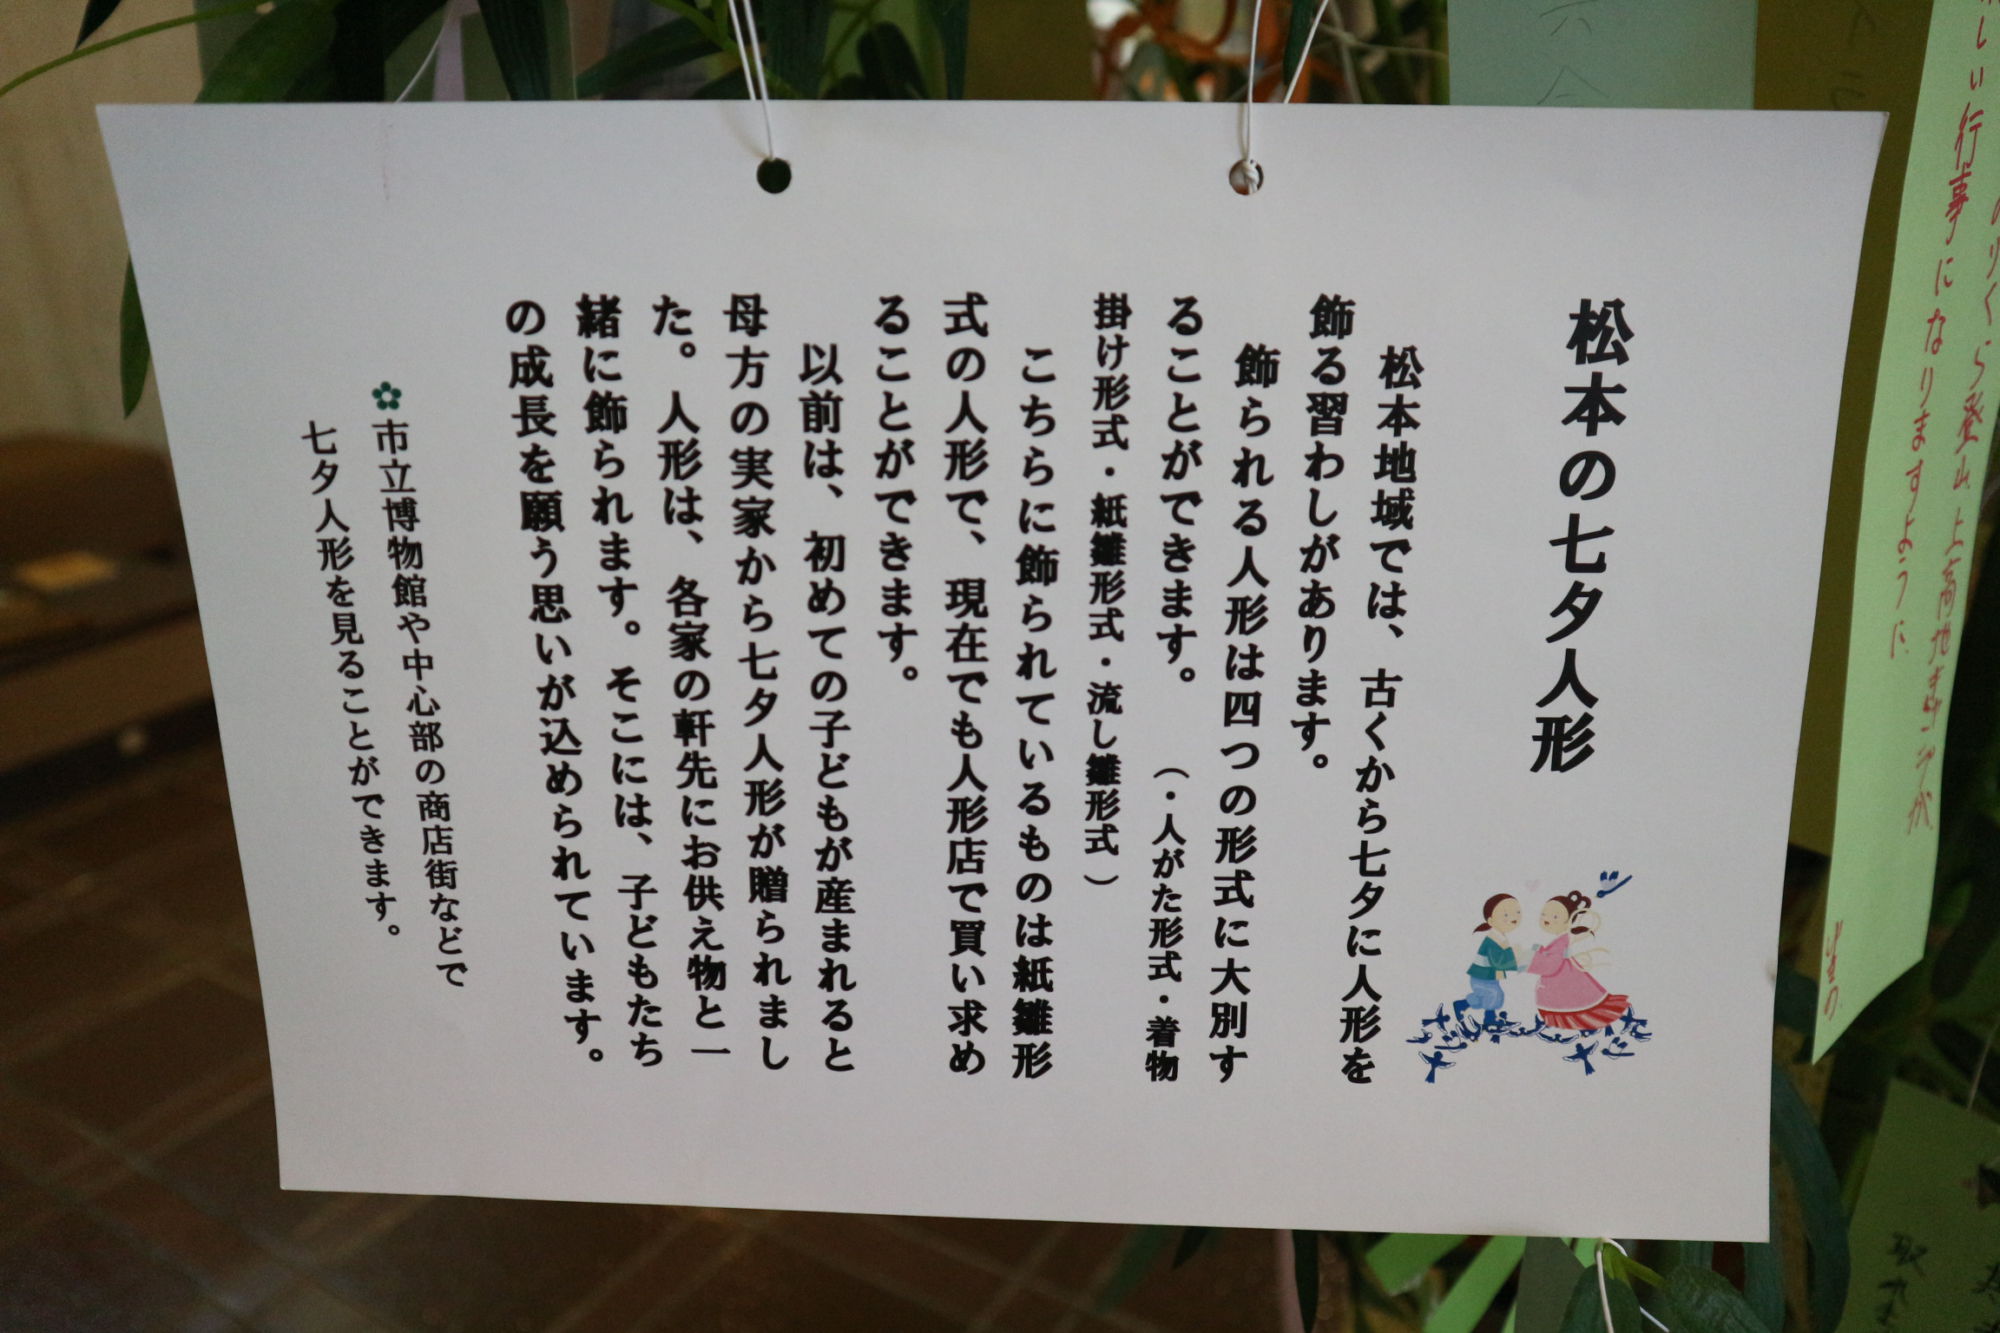 松本の七夕人形
松本地域では、古くから七夕に人形を
飾る習わしがあります。
飾られる人形は四つの形式に大別す
ることができます。　（・人がた形式・着物
掛け形式・紙雛形式・流し雛形式）
こちらに飾られているものは紙雛形
式の人形で、現在でも人形店で買い求め
ることができます。
以前は、初めての子どもが産まれると
母方の実家から七夕人形が贈られまし
た。人形は、各家の軒先にお供え物と一
緒に飾られます。そこには、子どもたち
の成長を願う思いが込められています。
✿市立博物館や中心部の商店街などで
七夕人形を見ることができます。
しい行事になりますように